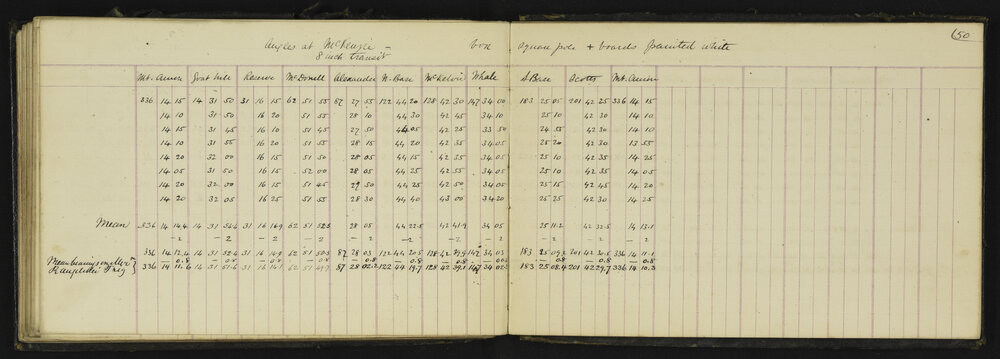 50
Angles at McKenzie - box square pole + boards painted white
8 inch transit
Mt. Annie Goat Hill Reserve McDonell Alexander N. Base McKelvie Whale S Base Scotts Mt. Annie
336 14 15 14 31 50 31 16 15 62 51 55 87 27 55 122 44 20 128 42 30 147 34 00 183 25 05 201 42 25 336 14 15
14 10 31 50 16 20 51 55 28 10 44 30 42 45 34 10 25 10 42 30 14 10
14 15 31 45 16 10 51 45 27 50 44 05 42 25 33 50 24 55 42 30 14 10
14 10 31 55 16 20 51 55 28 15 44 20 42 35 34 05 25 20 42 30 13 55
14 20 32 00 16 15 51 50 28 05 44 15 42 35 34 05 25 10 42 35 14 25
14 05 31 50 16 10 52 00 28 05 44 25 42 55 34 05 25 10 42 35 14 05
14 20 32 00 16 15 51 45 27 50 44 25 42 50 34 05 25 15 42 45 14 20
14 20 32 05 16 25 51 55 28 30 44 40 43 00 34 20 25 25 42 30 14 25
Mean 336 14 14.4 14 31 54.4 31 16 16.9 62 51 52.5 28 05 44 22.5 42 41.9 34 05 25 11.2 42 32.5 14 13.1
- 2 - 2 - 2 - 2 - 2 - 2 - 2 - 2 - 2 - 2 - 2
336 14 12.4 14 31 52.4 31 16 14.9 62 51 50.5 87 28 03 122 44 20.5 128 42 39.9 147 34 03 183 25 09.2 201 42 30.5 336 14 11.1
- 0.8 - 0.8 - 0.8 - 0.8 - 0.8 - 0.8 - 0.8 - 0.8 - 0.8 - 0.8 - 0.8
Mean bearing
Trig 336 14 11.6 14 31 51.6 31 16 14.1 62 51 49.7 87 28 02.2 122 44 19.7 128 42 39.1 147 34 02.2 183 25 08.4 201 42 29.7 336 14 10.3